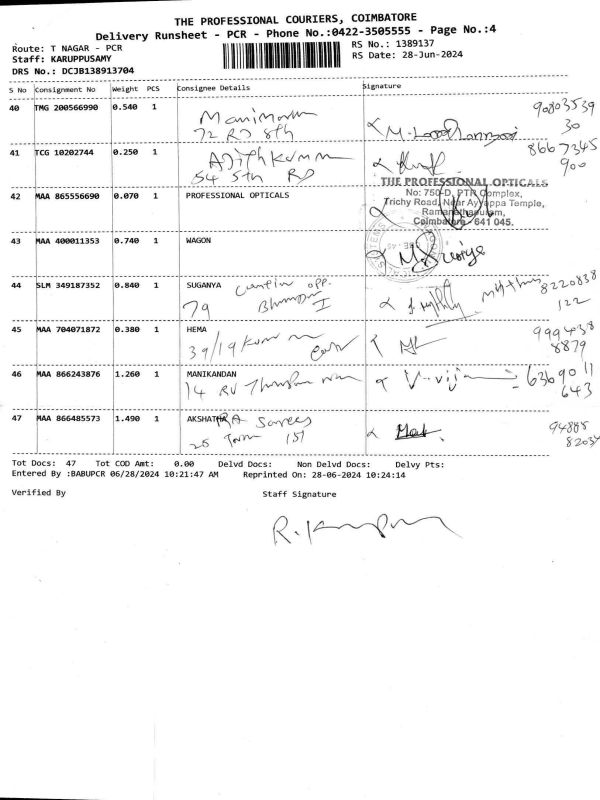 THE PROFESSIONAL COURIERS, COIMBATORE
Delivery Runsheet - PCR - Phone No.:0422-3505555 - Page No.:4
Route: T NAGAR - PCR
RS No.: 1389137
Staff: KARUPPUSAMY
RS Date: 28-Jun-2024
DRS No.: DCJB138913704
S No Consignment No Weight PCS Consignee Details Signature
40 TMG 200566990 0.540 1
72 RD 8th
90803539
30
41 TCG 10202744 0.250 1
Ajithkumar
54 5th RD
8667345
900
42 MAA 865556690 0.070 1 PROFESSIONAL OPTICALS
THE PROFESSIONAL OPTICALS
No: 750-D, PTR Complex,
Trichy Road, Near Ayyappa Temple,
Ramanathapuram,
Coimbatore - 641 045.
43 MAA 400011353 0.740 1 WAGON
44 SLM 349187352 0.840 1 SUGANYA opp.
79
8220838
122
45 MAA 704071872 0.380 1 HEMA
39/19
9994438
8879
46 MAA 866243876 1.260 1 MANIKANDAN
14
6369011
643
47 MAA 866485573 1.490 1 AKSHATHRA Sarees
25
94885
82034
Tot Docs: 47 Tot COD Amt: 0.00 Delvd Docs: Non Delvd Docs: Delvy Pts:
Entered By :BABUPCR 06/28/2024 10:21:47 AM Reprinted On: 28-06-2024 10:24:14
Verified By Staff Signature